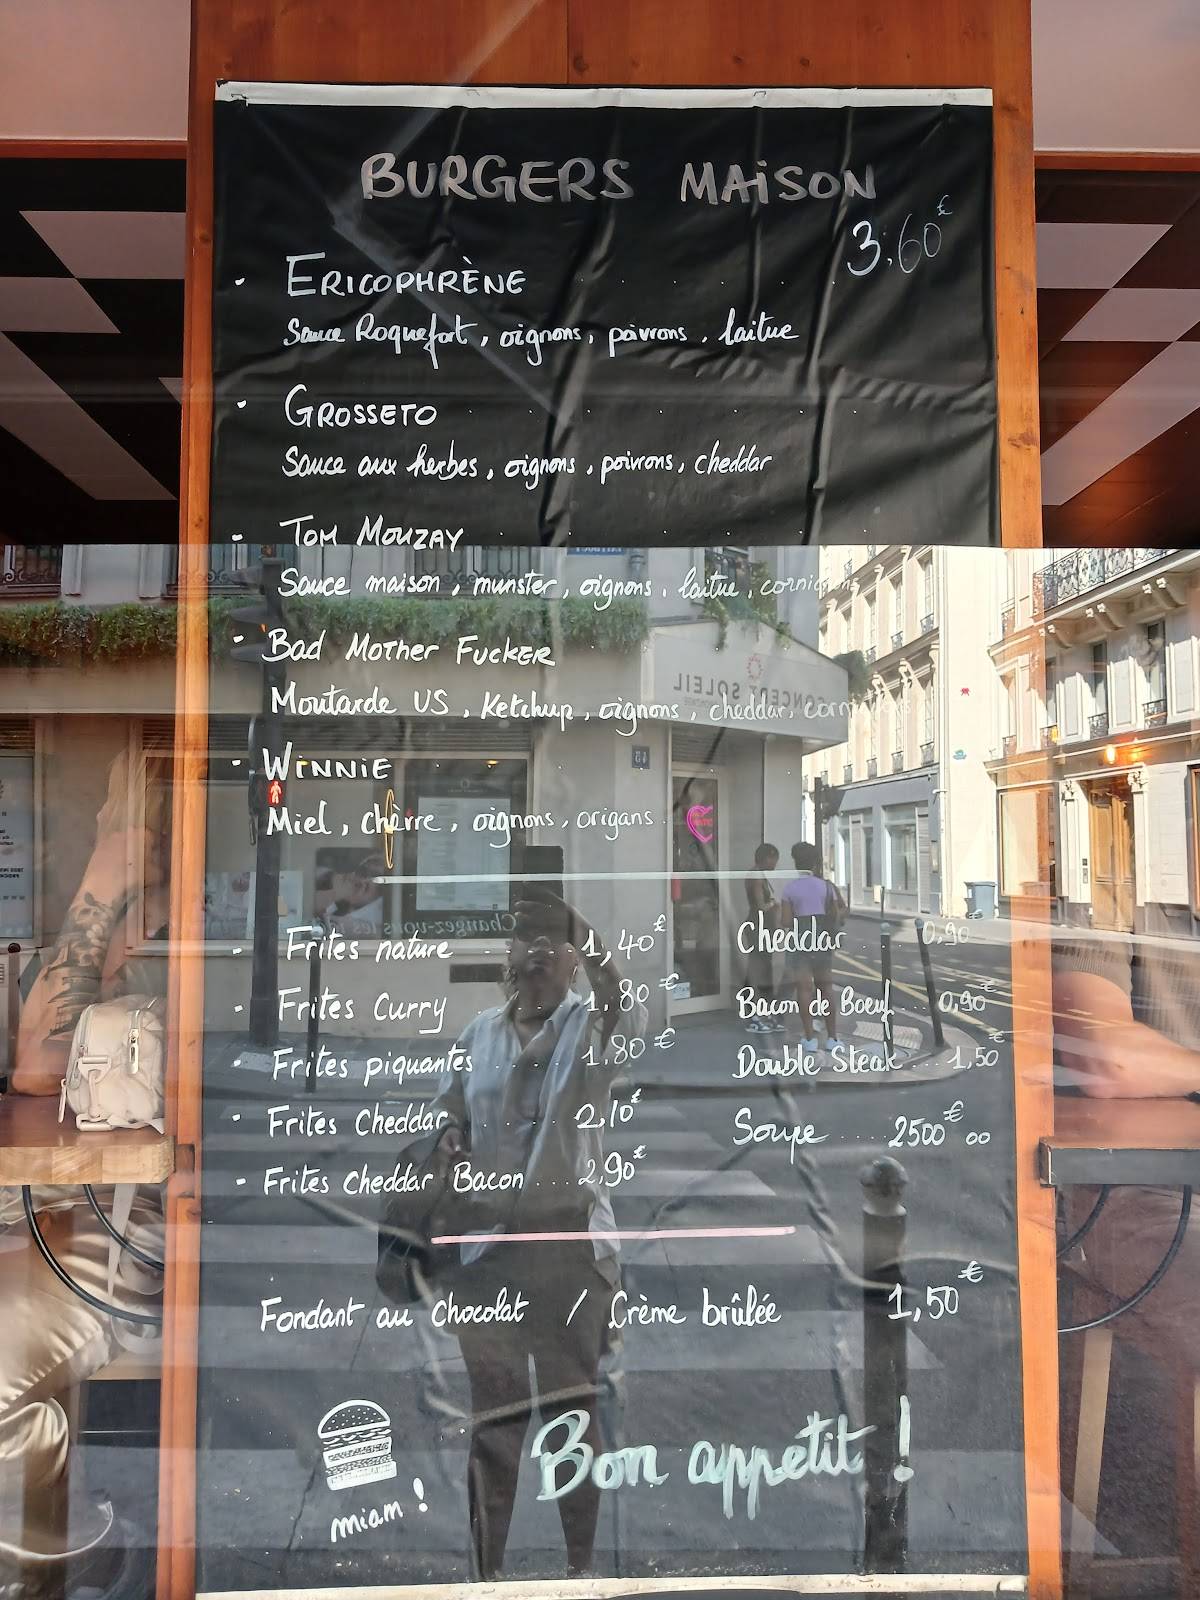 BURGERS MAISON
3,60€
· ERICOPHRÈNE
Sauce Roquefort, oignons, poivrons, laitue
· GROSSETO
Sauce aux herbes, oignons, poivrons, cheddar
- TOM MOUZAY
Sauce maison, munster, oignons, laitue, cornichons
- Bad MoTher FUCKER
Moutarde US, Ketchup, oignons, cheddar, cornichons
- WiNNiE
Miel, chèvre, oignons, origans
- Frites nature 1,40€
- Frites Curry 1,80€
- Frites piquantes 1,80€
- Frites Cheddar 2,10€
- Frites Cheddar Bacon ... 2,90€
Cheddar 0,90
Bacon de Boeuf ... 0,90€
Double Steak ... 1,50€
Soupe ... 2500€00
Fondant au chocolat / Crème brûlée 1,50€
miam !
Bon appetit !
CONCEPT SOLEIL
Changez-vous les